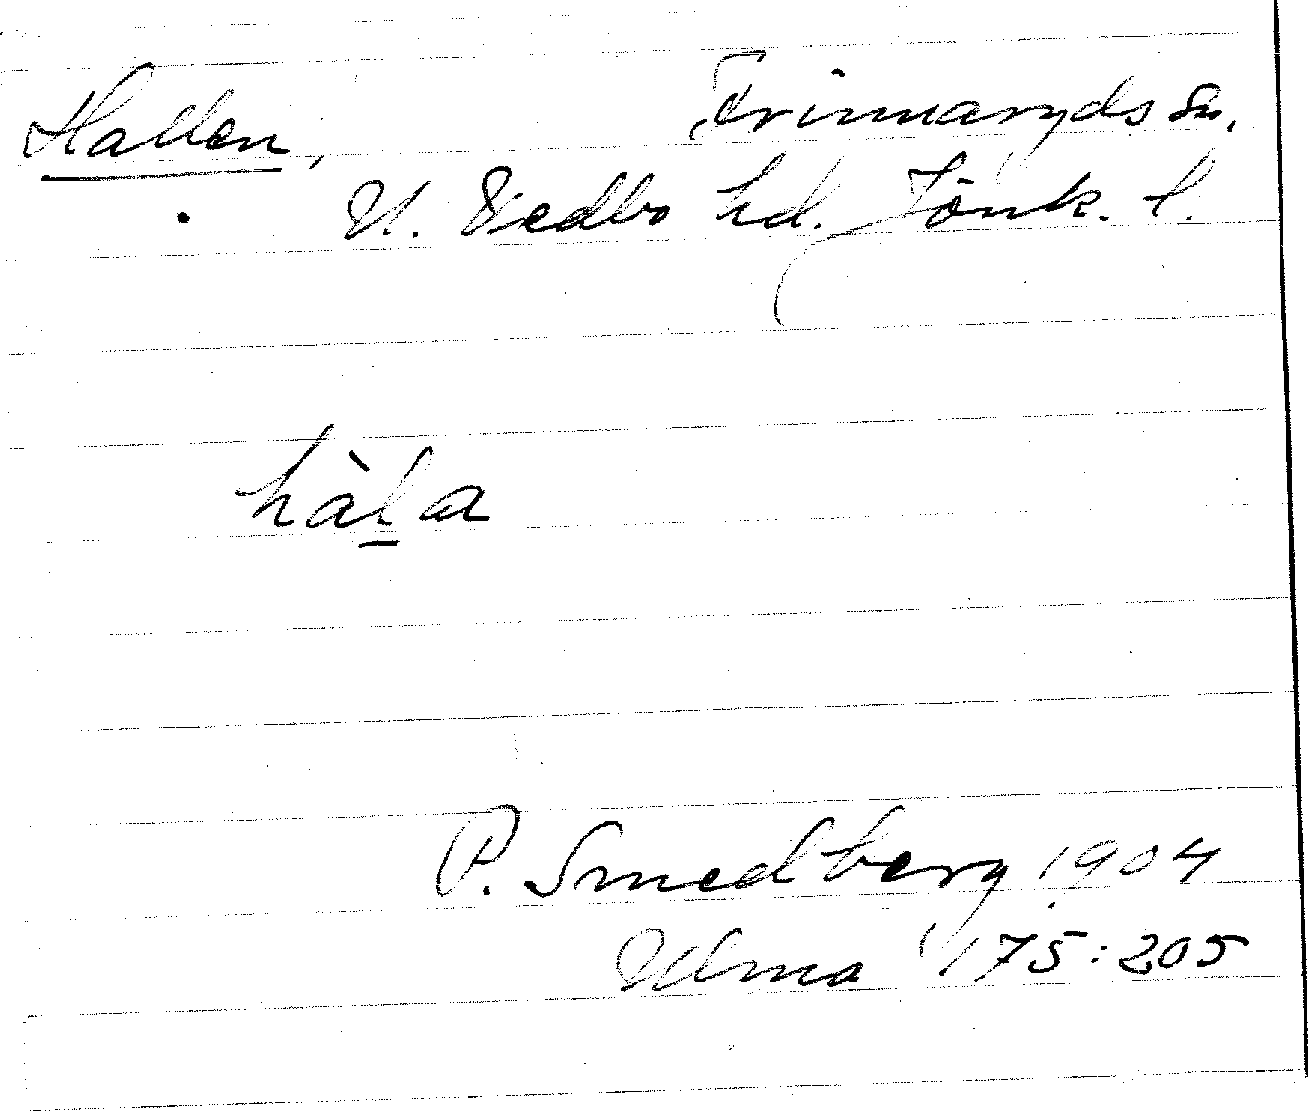 Hallen, Frinnaryds sn,
N. Vedbo hd. Jönk. l.
hàl̲a
P. Smedberg 1904
Ulma 175:205